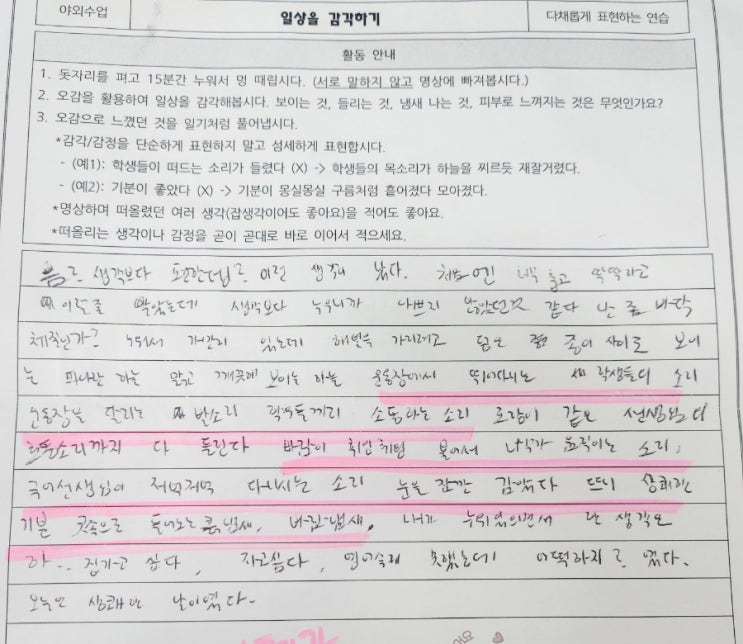 야외수업 일상을 감각하기 다채롭게 표현하는 연습
활동 안내
1. 돗자리를 펴고 15분간 누워서 멍 때립시다. (서로 말하지 않고 명상에 빠져봅시다.)
2. 오감을 활용하여 일상을 감각해봅시다. 보이는 것, 들리는 것, 냄새 나는 것, 피부로 느껴지는 것은 무엇인가요?
3. 오감으로 느꼈던 것을 일기처럼 풀어냅시다.
*감각/감정을 단순하게 표현하지 말고 섬세하게 표현합시다.
- (예1): 학생들이 떠드는 소리가 들렸다 (X) -> 학생들의 목소리가 하늘을 찌르듯 재잘거렸다.
- (예2): 기분이 좋았다 (X) -> 기분이 몽실몽실 구름처럼 흩어졌다 모아졌다.
*명상하며 떠올렸던 여러 생각(잡생각이어도 좋아요)을 적어도 좋아요.
*떠올리는 생각이나 감정을 곧이 곧대로 바로 이어서 적으세요.
생각보다 이런 생각이 났다. 처음엔 춥고 딱딱하고
이럴줄 알았는데 생각보다 누우니까 나쁘지 않았던것 같다 난 좀 바닥
체질인가? 누워서 가만히 있는데 햇빛을 가리려고 종이 사이로 보이
는 파아란 하늘 맑고 깨끗해 보이는 하늘 운동장에서 뛰어다니는 학생들의 소리
운동장을 달리는 발소리 소통하는 소리 호랑이 같은 선생님의
소리까지 다 들린다 바람이 휘잉휘잉 불어서 나뭇가 움직이는 소리,
국어선생님이 저벅저벅 다니시는 소리 눈을 잠깐 감았다 뜨니 상쾌한
기분 콧속으로 들어오는 흙냄새, 바람냄새. 내가 누워있으면서 한 생각은
하.. 집가고 싶다, 자고싶다, 영어숙제 못했는데 어떡하지 였다.
오늘은 상쾌한 날이였다.